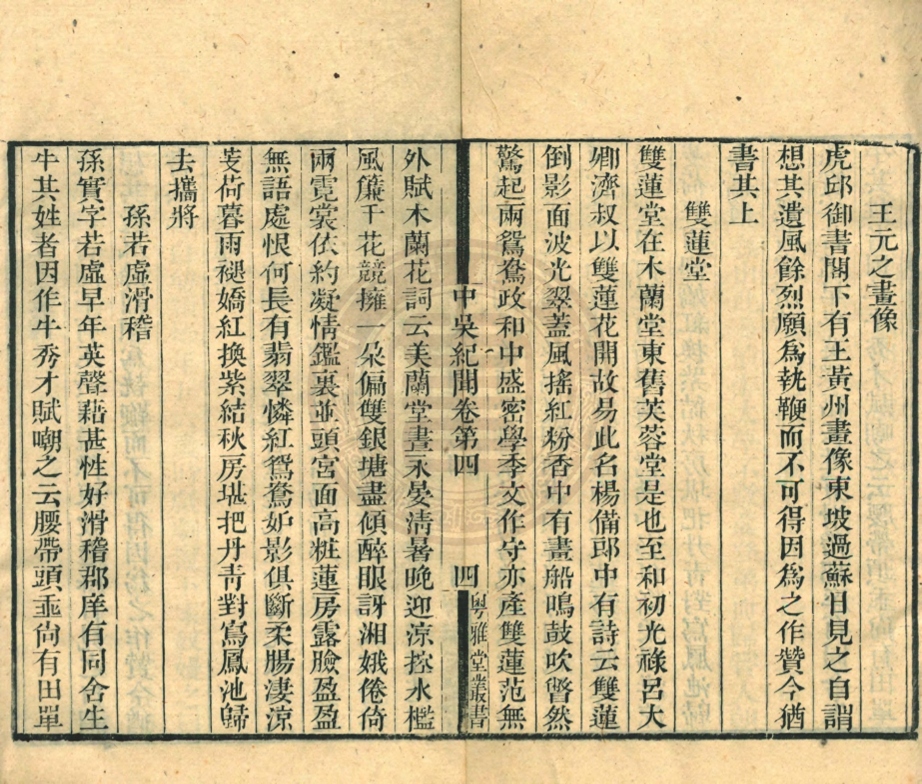 王元之畫像
虎邱御書閣下有王黃州畫像東坡過蘇日見之自謂
想其遺風餘烈願爲執鞭而不可得因爲之作贊今猶
書其上
雙蓮堂
雙蓮堂在木蘭堂東舊芙蓉堂是也至和初光祿呂大
卿濟叔以雙蓮花開故易此名楊備郎中有詩云雙蓮
倒影面波光翠蓋風搖紅粉香中有畫船鳴鼓吹瞥然
驚起兩鴛鴦政和中盛密學季文作守亦產雙蓮范無
中吳紀聞卷第四
四
粤雅堂叢書
外賦木蘭花詞云美蘭堂晝永晏淸暑晚迎涼控水檻
風簾千花競擁一朵偏雙銀塘盡傾醉眼訝湘娥倦倚
兩霓裳依約凝情鑑裏並頭宮面高粧蓮房露臉盈盈
無語處恨何長有翡翠憐紅鴛鴦妒影俱斷柔腸淒涼
芰荷暮雨褪嬌紅換紫結秋房堪把丹青對寫鳳池歸
去攜將
孫若虛滑稽
孫實字若虛早年英聲藉甚性好滑稽郡庠有同舍生
牛其姓者因作牛秀才賦嘲之云腰帶頭垂尙有田單